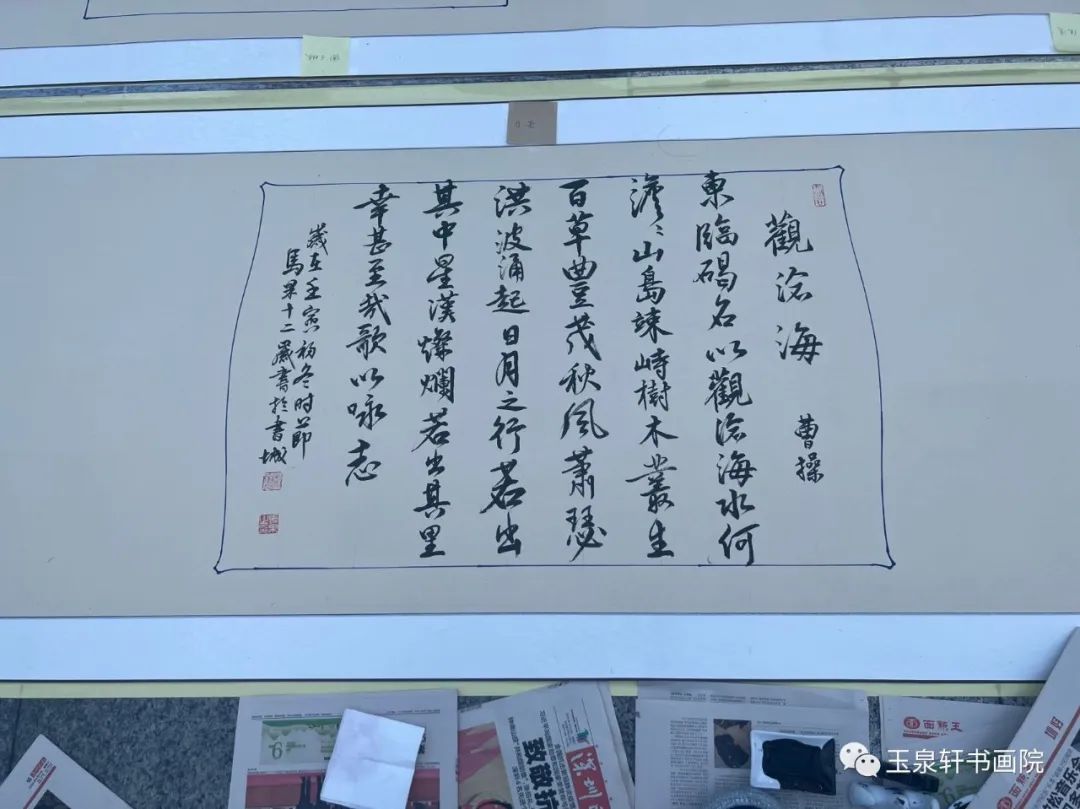 觀滄海
曹操
東臨碣石以觀滄海水何
澹〻山島竦峙樹木叢生
百草豐茂秋風蕭瑟
洪波涌起日月之行若出
其中星漢燦爛若出其里
幸甚至哉歌以咏志
歲在壬寅初冬时節
馬果十二歲書於書城
致敬抗
面瓶王
玉泉轩书画院